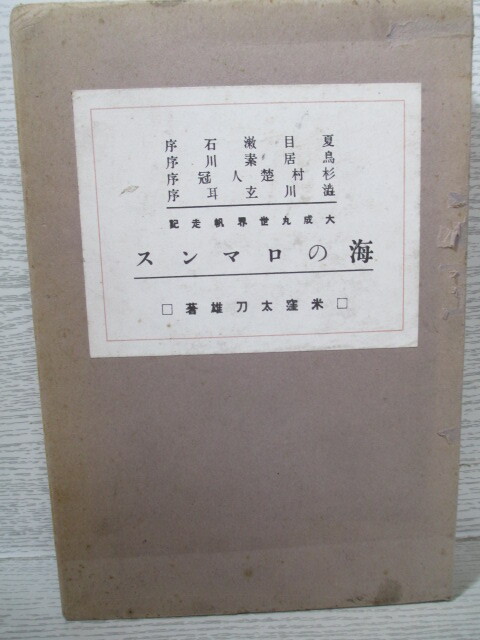 夏目漱石序
鳥居素川序
杉村楚人冠序
澁川玄耳序
大成丸世界帆走記
海のロマンス
□米窪太刀雄著□